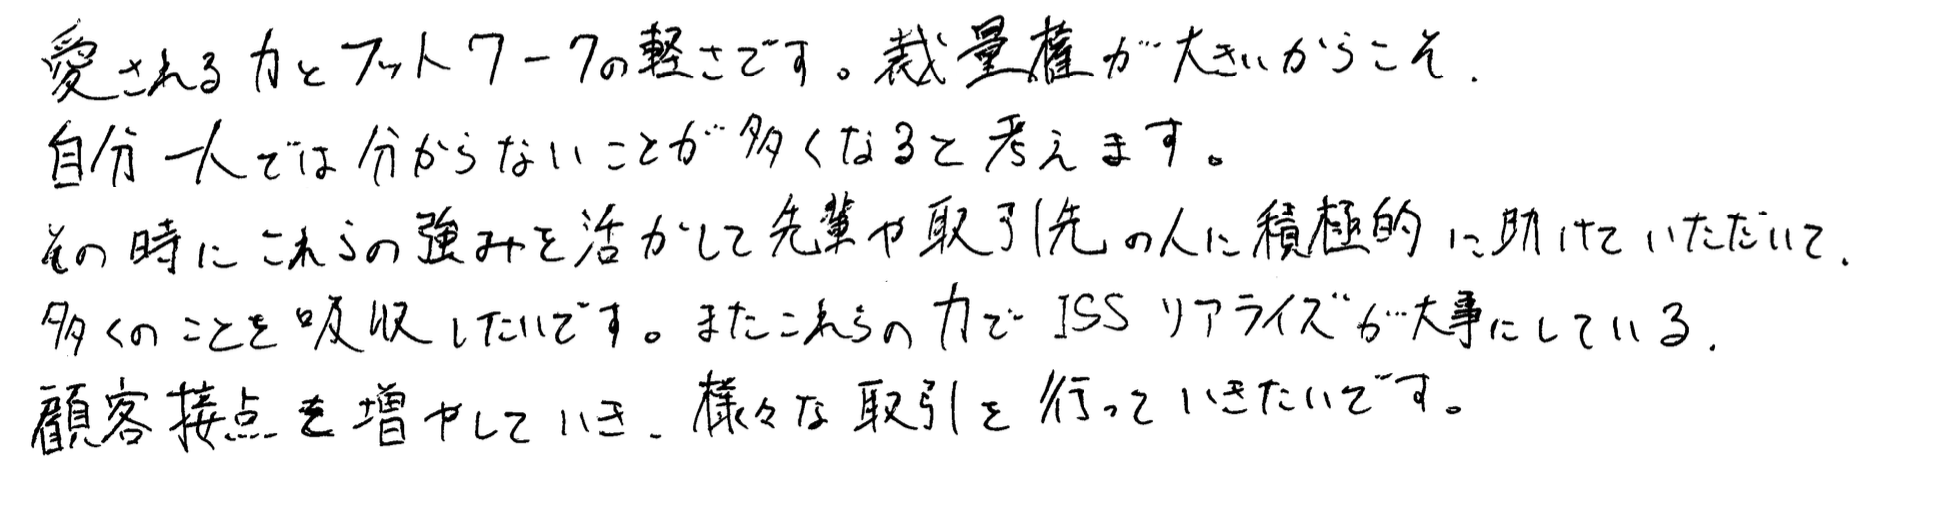 愛される力とフットワークの軽さです。裁量権が大きいからこそ、
自分一人では分からないことが多くなると考えます。
その時にこれらの強みを活かして先輩や取引先の人に積極的に助けていただいて、
多くのことを吸収したいです。またこれらの力でISSリアライズが大事にしている、
顧客接点を増やしていき、様々な取引を行っていきたいです。